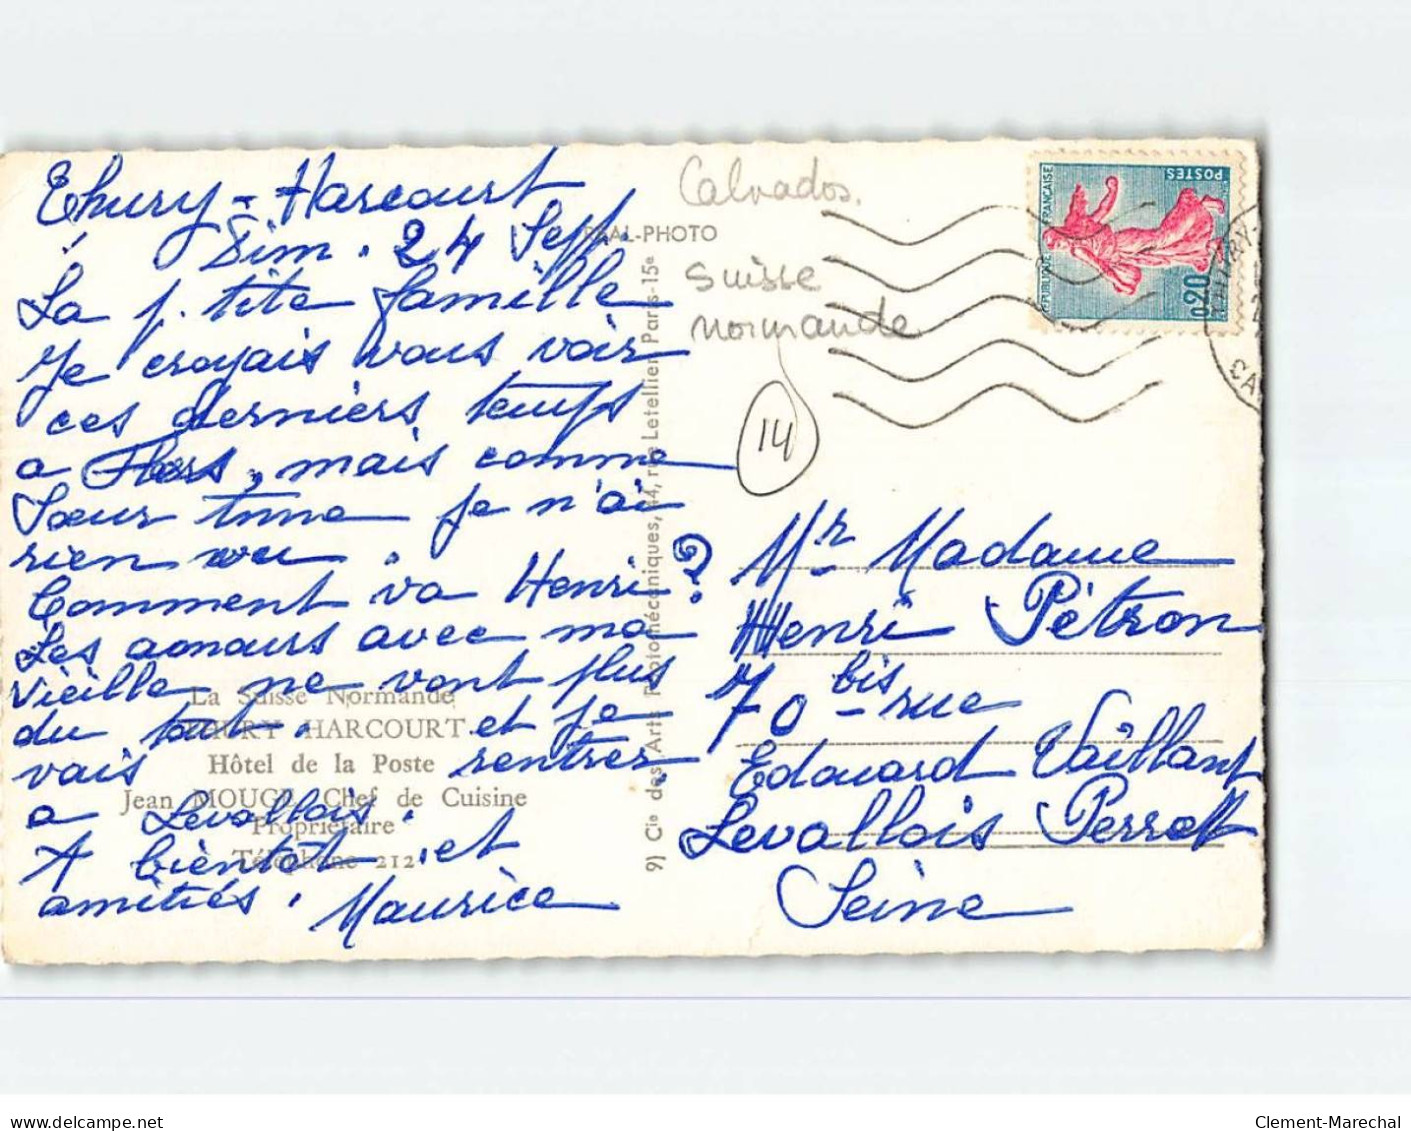 Thury-Harcourt
Dim. 24 Sept.
La p. tite famille
Je croyais vous voir
ces derniers temps
a Flers, mais comme
Sœur Anne je n'ai
rien vu.
Comment va Henri?
Les amours avec ma
vieille ne vont plus
du tout. et je
vais rentrer
a Levallois.
A bientôt. et
amitiés. Maurice
La Suisse Normande
THURY HARCOURT
Hôtel de la Poste
Jean MOUGE, Chef de Cuisine
Propriétaire
Téléphone 212
REAL-PHOTO
9) Cie des Arts Photomécaniques, 44, rue Letellier Paris-15e
Calvados.
Suisse
normande
14
RÉPUBLIQUE FRANÇAISE
POSTES
0,20
Mr Madame
Henri Pétron
70 bis rue
Edouard Vaillant
Levallois Perret
Seine
delcampe.net
Clement-Marechal